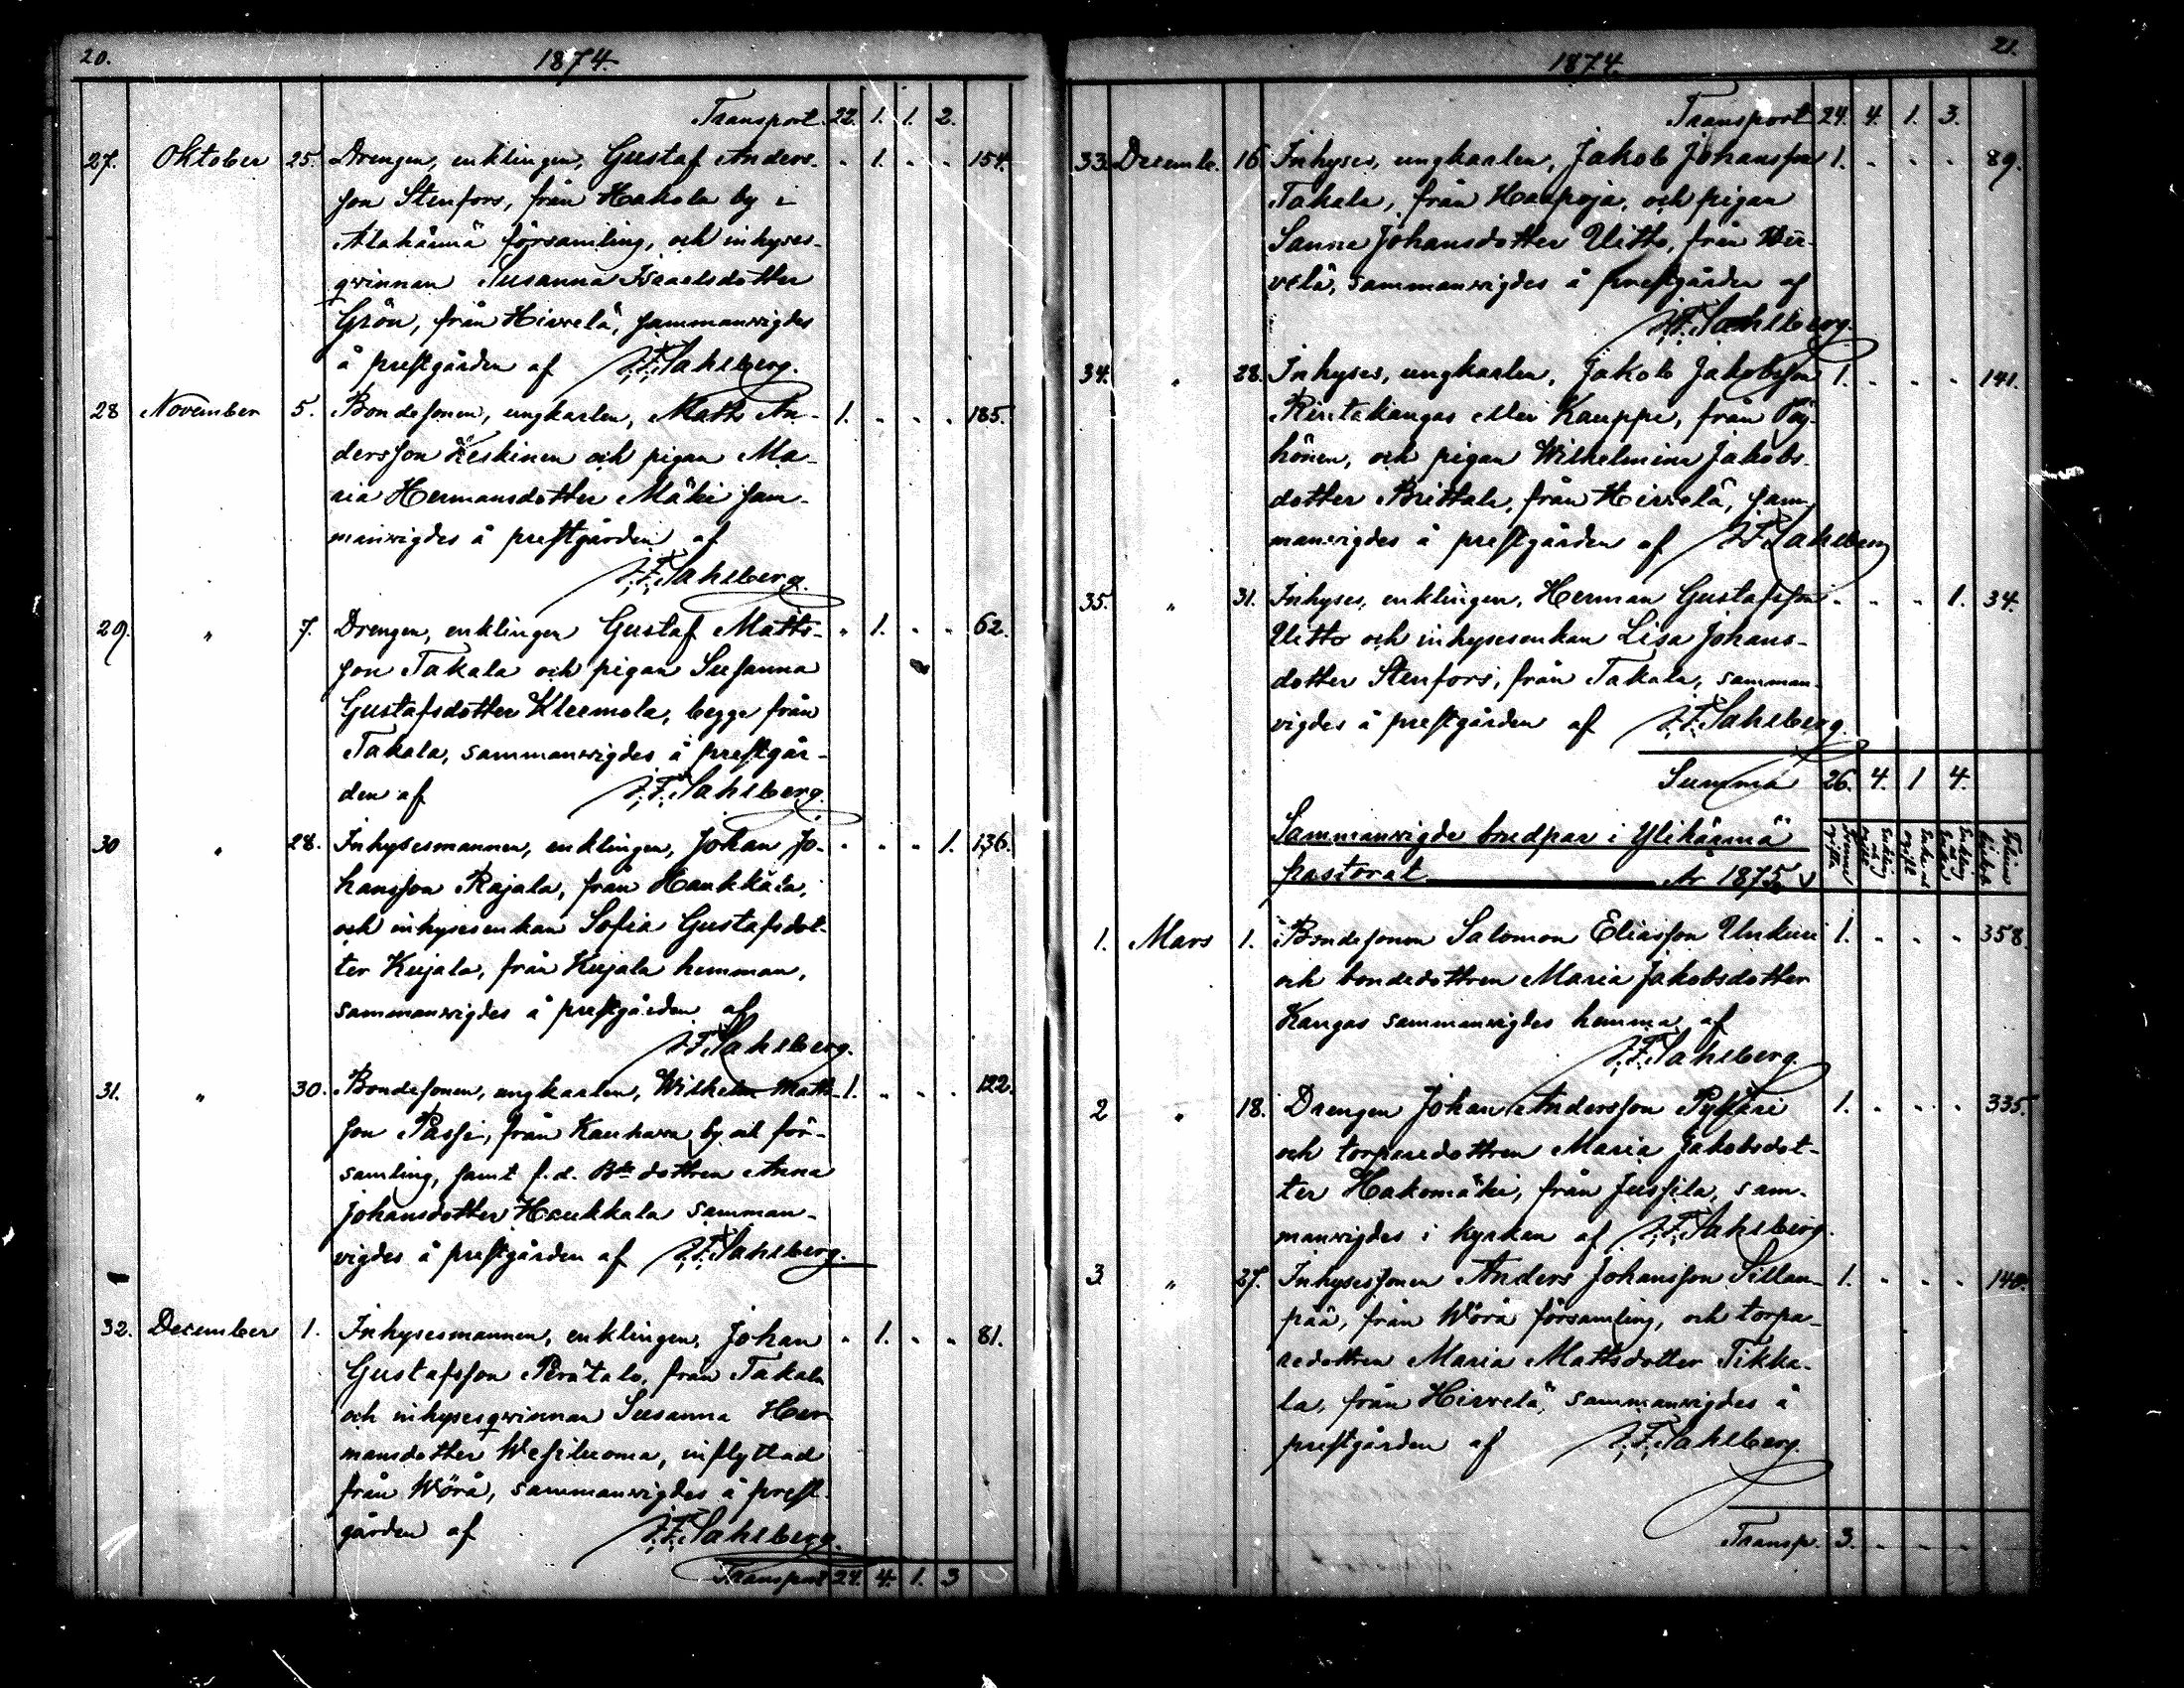 20.
1874.
Transport 22. 1. 1. 2.
27. Oktober 25. Drengen, enklingen, Gustaf Anders- " 1. " " 154.
son Stenfors, från Hakola by i
Alahärmä församling, och inhyses-
qvinnan Susanna Israelsdotter
Grön, från Hirvelä, sammanvigdes
å prestgården af J.F. Sahlberg.
28 November 5. Bondesonen, ungkarlen, Matts An- 1. " " " 185.
dersson Keskinen och pigan Ma-
ria Hermansdotter Mäki sam-
manvigdes å prestgården af
J.F. Sahlberg.
29. " 7. Drengen, enklingen Gustaf Matts- " 1. " " 62.
son Takala och pigan Susanna
Gustafsdotter Kleemola, begge från
Takala, sammanvigdes å prestgår-
den af J.F. Sahlberg.
30 " 28. Inhysesmannen, enklingen, Johan Jo- " " " 1. 136.
hansson Rajala, från Haukkala,
och inhysesenkan Sofia Gustafsdot-
ter Kujala, från Kujala hemman,
sammanvigdes å prestgården af
J.F. Sahlberg.
31. " 30. Bondesonen, ungkarlen, Wilhelm Matts- 1. " " " 122.
son Passi, från Kauhava by och för-
samling, samt f.d. Bde dottren Anna
Johansdotter Haukkala samman-
vigdes å prestgården af J.F. Sahlberg.
32. December 1. Inhysesmannen, enklingen, Johan " 1. " " 81.
Gustafsson Perätalo, från Takala
och inhysesqvinnan Susanna Her
mansdotter Wesiluoma, inflyttad
från Wörå, sammanvigdes å prest-
gården af J.F. Sahlberg.
Transport 24. 4. 1. 3
21.
1874.
Transport 24. 4. 1. 3.
33. Decemb. 16. Inhyses, ungkarlen, Jakob Johansson 1. " " " 89.
Takala, från Haapoja, och pigan
Sanna Johansdotter Uitto, från
velä, sammanvigdes å prestgården af
J.F. Sahlberg.
34. " 28. Inhyses, ungkarlen, Jakob Jakobsson 1. " " " 141.
Rintakangas eller Kauppi, från Pöy-
hönen, och pigan Wilhelmina Jakobs-
dotter Brittala, från Hirvelä, sam
manvigdes å prestgården af J.F. Sahlberg
35. " 31. Inhyses, enklingen, Herman Gustafsson " " " 1. 34.
Uitto och inhysesenkan Lisa Johans-
dotter Stenfors, från Takala, samman-
vigdes å prestgården af J.F. Sahlberg.
Summa 26. 4. 1 4.
Sammanvigde brudpar i Ylihärmä
pastorat År 1875.
1. Mars 1. Bondesonen Salomon Eliasson Unkuri 1. " " " 358.
och bondedottren Maria Jakobsdotter
Kangas sammanvigdes hemma af
J.F. Sahlberg.
2 " 18. Drengen Johan Andersson Pyssäri 1. " " " 335.
och torparedottren Maria Jakobsdot-
ter Hakomäki, från Jussila, sam-
manvigdes i kyrkan af J.F. Sahlberg.
3. " 27. Inhysessonen Anders Johansson Sillan- 1. " " " 140.
pää, från Wörå församling, och torpa-
redottren Maria Mattsdotter Tikka-
la, från Hirvelä, sammanvigdes å
prestgården af J.F. Sahlberg.
Transp. 3. " " "